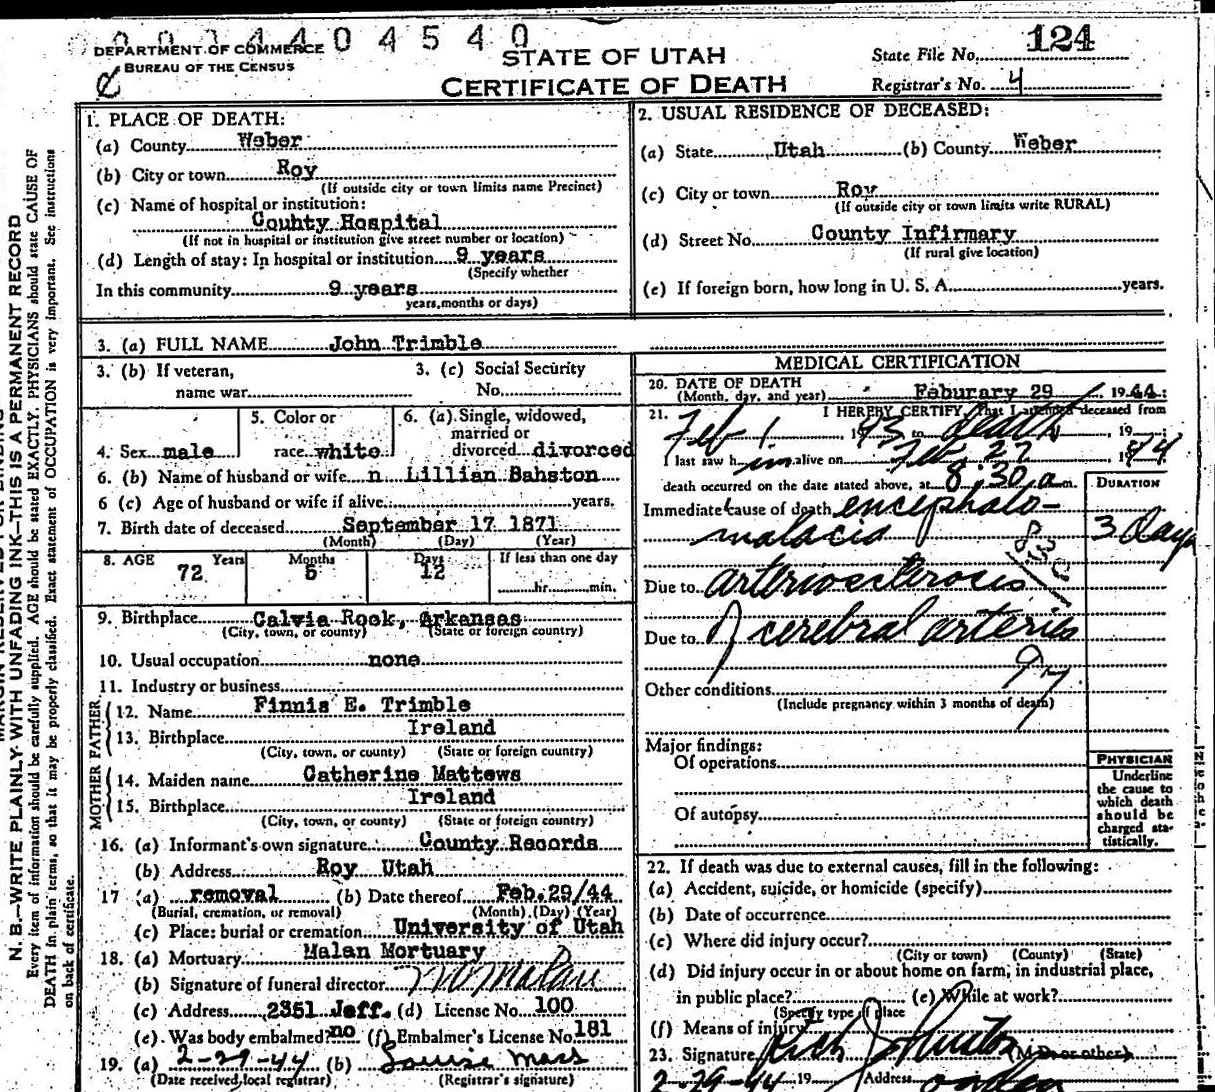 0014404540
DEPARTMENT OF COMMERCE
BUREAU OF THE CENSUS
STATE OF UTAH
CERTIFICATE OF DEATH
State File No. 124
Registrar's No. 4
N. B.—WRITE PLAINLY WITH UNFADING INK—THIS IS A PERMANENT RECORD
Every item of information should be carefully supplied. AGE should be stated EXACTLY. PHYSICIANS should state CAUSE OF
DEATH in plain terms, so that it may be properly classified. Exact statement of OCCUPATION is very important. See instructions
on back of certificate.
1. PLACE OF DEATH:
(a) County Weber
(b) City or town Roy
(If outside city or town limits name Precinct)
(c) Name of hospital or institution:
County Hospital
(If not in hospital or institution give street number or location)
(d) Length of stay: In hospital or institution 9 years
(Specify whether
In this community 9 years
years, months or days)
2. USUAL RESIDENCE OF DECEASED:
(a) State Utah (b) County Weber
(c) City or town Roy
(If outside city or town limits write RURAL)
(d) Street No. County Infirmary
(If rural give location)
(e) If foreign born, how long in U. S. A. years.
3. (a) FULL NAME John Trimble
3. (b) If veteran,
name war
3. (c) Social Security
No.
4. Sex male
5. Color or
race white
6. (a) Single, widowed,
married or
divorced divorced
6. (b) Name of husband or wife n Lillian Bahston
6 (c) Age of husband or wife if alive years.
7. Birth date of deceased September 17 1871
(Month) (Day) (Year)
8. AGE Years Months Days If less than one day
72 5 12 hr. min.
9. Birthplace Calvia Rook, Arkansas
(City, town, or county) (State or foreign country)
10. Usual occupation none
11. Industry or business
FATHER
12. Name Finnis E. Trimble
13. Birthplace Ireland
(City, town, or county) (State or foreign country)
MOTHER
14. Maiden name Catherine Mattews
15. Birthplace Ireland
(City, town, or county) (State or foreign country)
16. (a) Informant's own signature County Records
(b) Address Roy Utah
17 (a) removal (b) Date thereof Feb.29/44
(Burial, cremation, or removal) (Month) (Day) (Year)
(c) Place: burial or cremation University of Utah
18. (a) Mortuary Malan Mortuary
(b) Signature of funeral director Malan
(c) Address 2351 Jeff. (d) License No. 100
(e) Was body embalmed? no (f) Embalmer's License No. 181
19. (a) 2-29-44 (b) Louise Mass
(Date received local registrar) (Registrar's signature)
MEDICAL CERTIFICATION
20. DATE OF DEATH
(Month, day, and year) Feburary 29, 1944
21. I HEREBY CERTIFY, That I attended deceased from
Feb 1, 193 to death, 19
I last saw him alive on Feb 27 1944
death occurred on the date stated above, at 8:30 a m.
DURATION
Immediate cause of death encephalo-
malacia 3 days
830
Due to arteriosclerosis
Due to of cerebral arteries
97
Other conditions
(Include pregnancy within 3 months of death)
Major findings:
Of operations
Of autopsy
PHYSICIAN
Underline
the cause to
which death
should be
charged sta-
tistically.
22. If death was due to external causes, fill in the following:
(a) Accident, suicide, or homicide (specify)
(b) Date of occurrence
(c) Where did injury occur?
(City or town) (County) (State)
(d) Did injury occur in or about home on farm, in industrial place,
in public place? (e) While at work?
(Specify type of place
(f) Means of injury
23. Signature Rich Johnston (M.D. or other)
2-29-44 19 Address Ogden